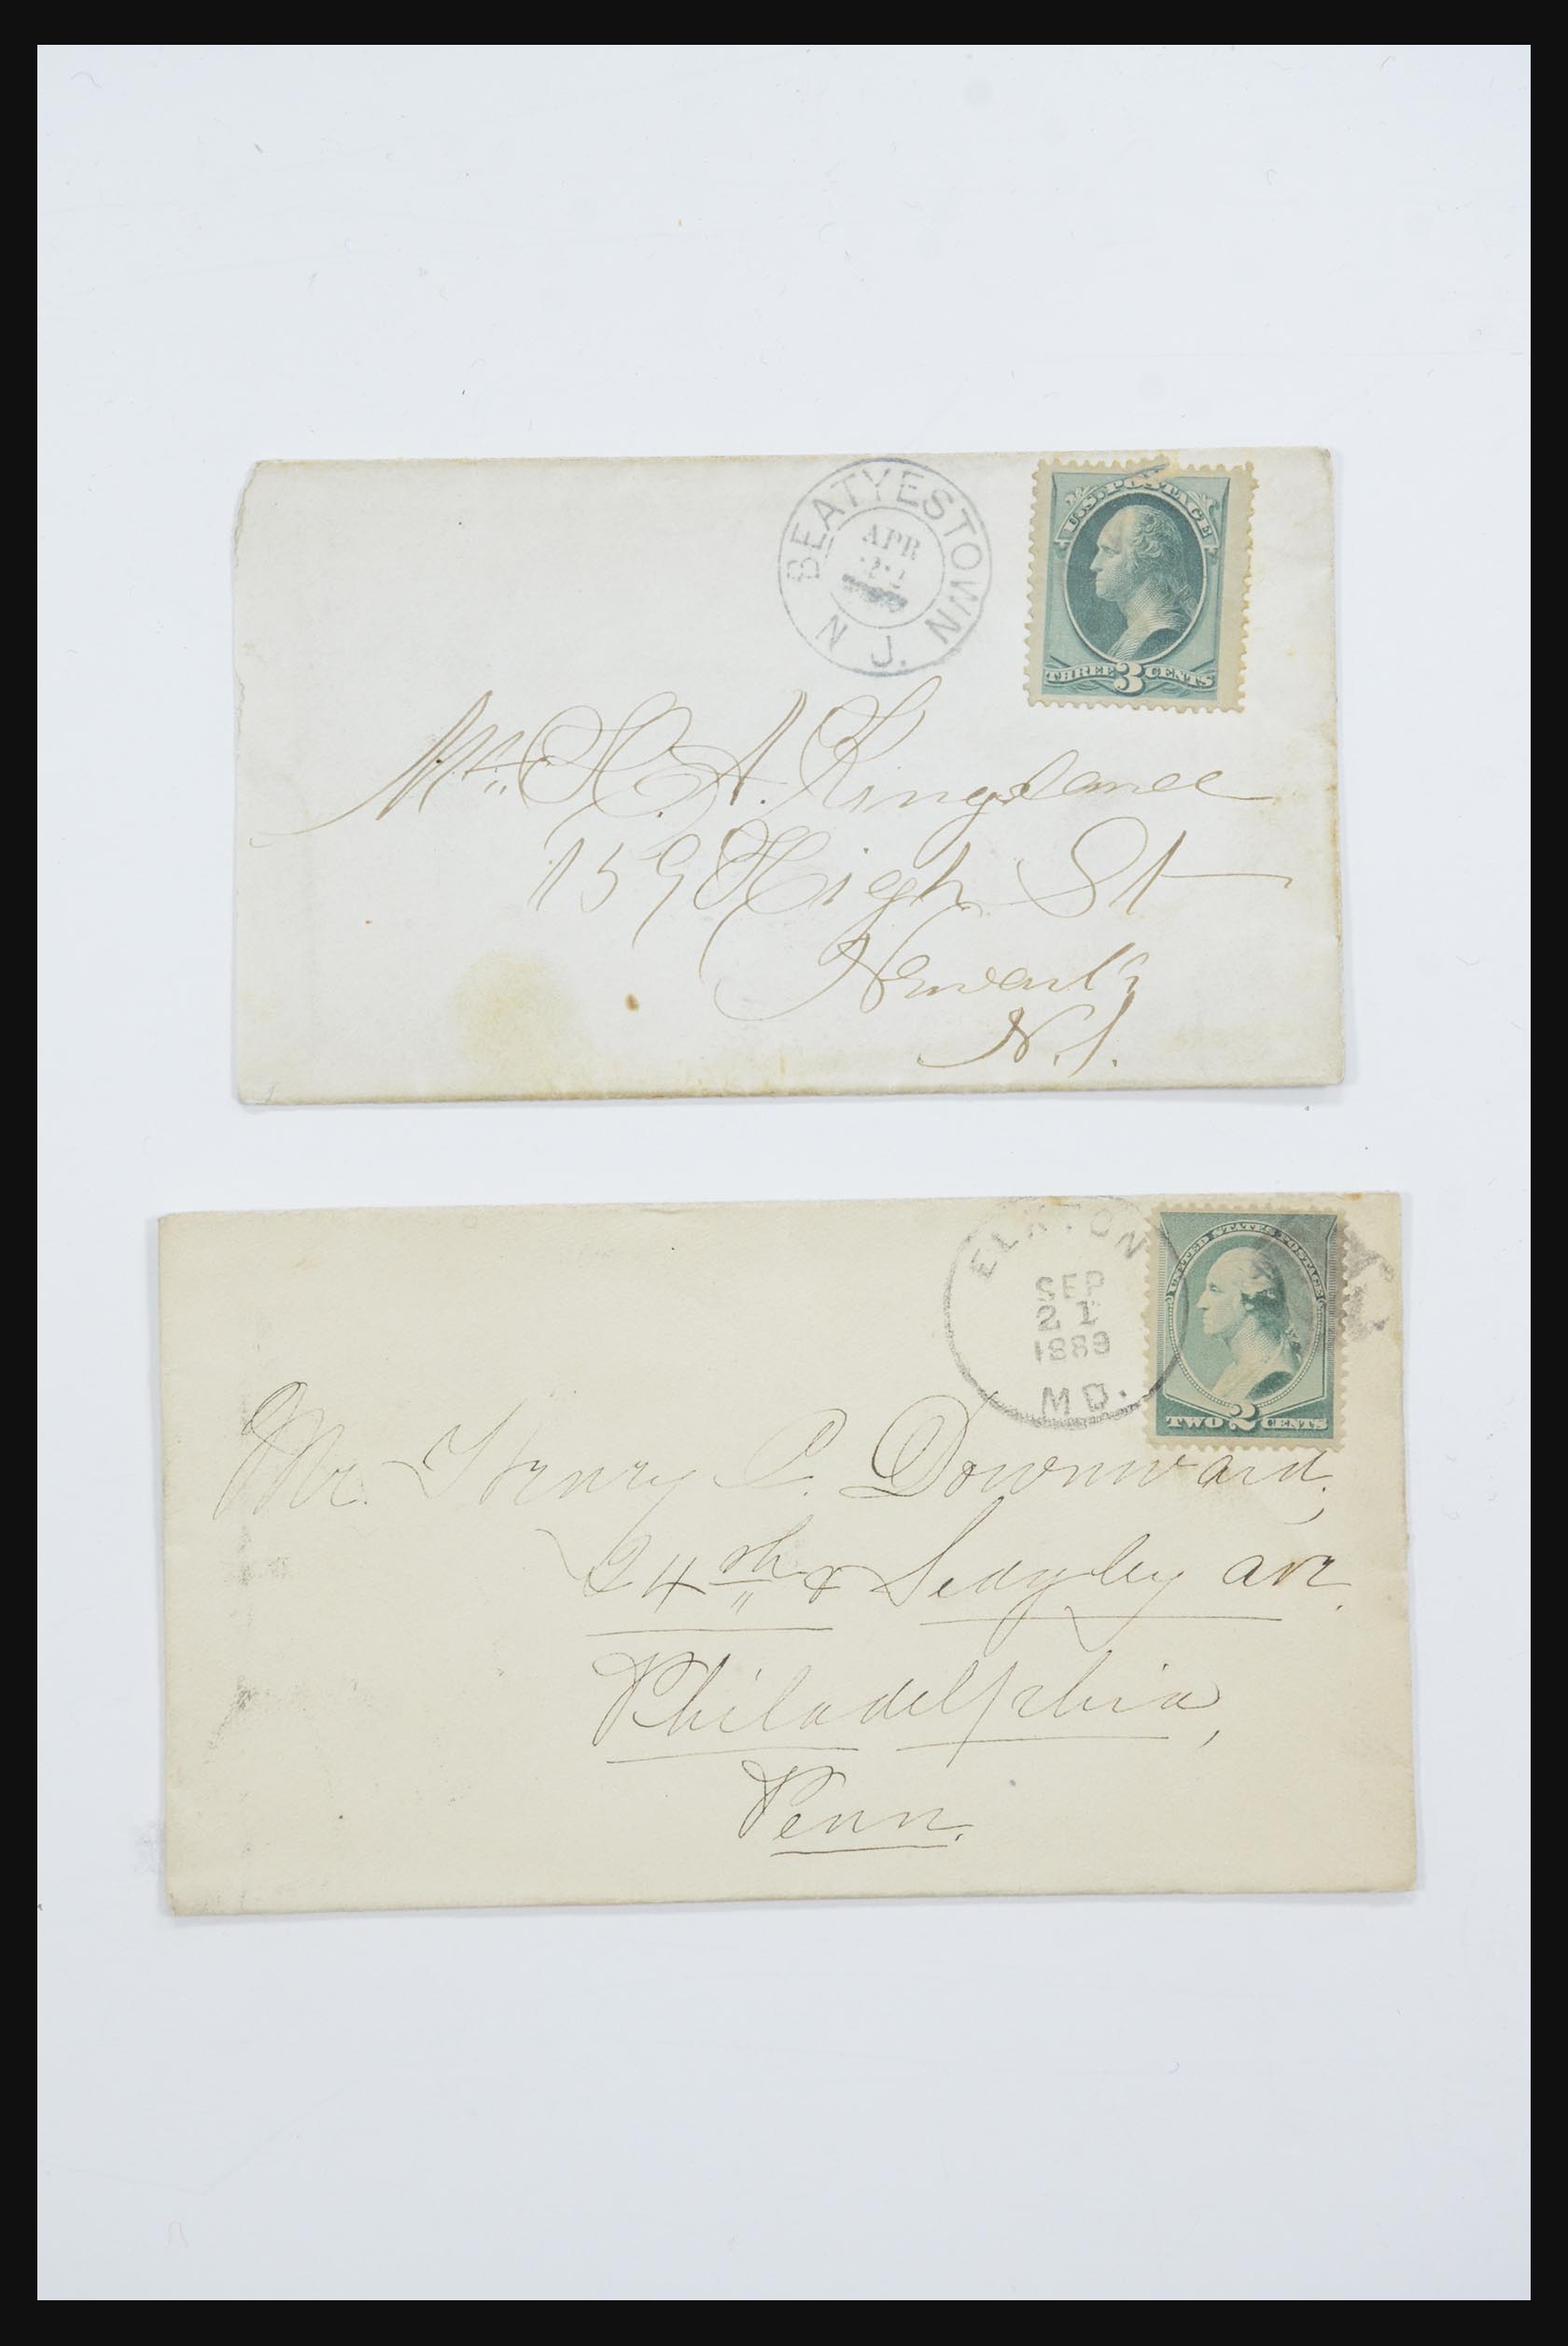 BEATYESTOWN
APR
22
N J.
U.S. POSTAGE
THREE 3 CENTS
Mr. H. A. Kingsland
159 High St
Newark
N.J.
ELKTON
SEP
21
1889
MD.
UNITED STATES POSTAGE
TWO 2 CENTS
Mr. Henry C. Downward,
24th & Sedgley ave.
Philadelphia,
Penn.